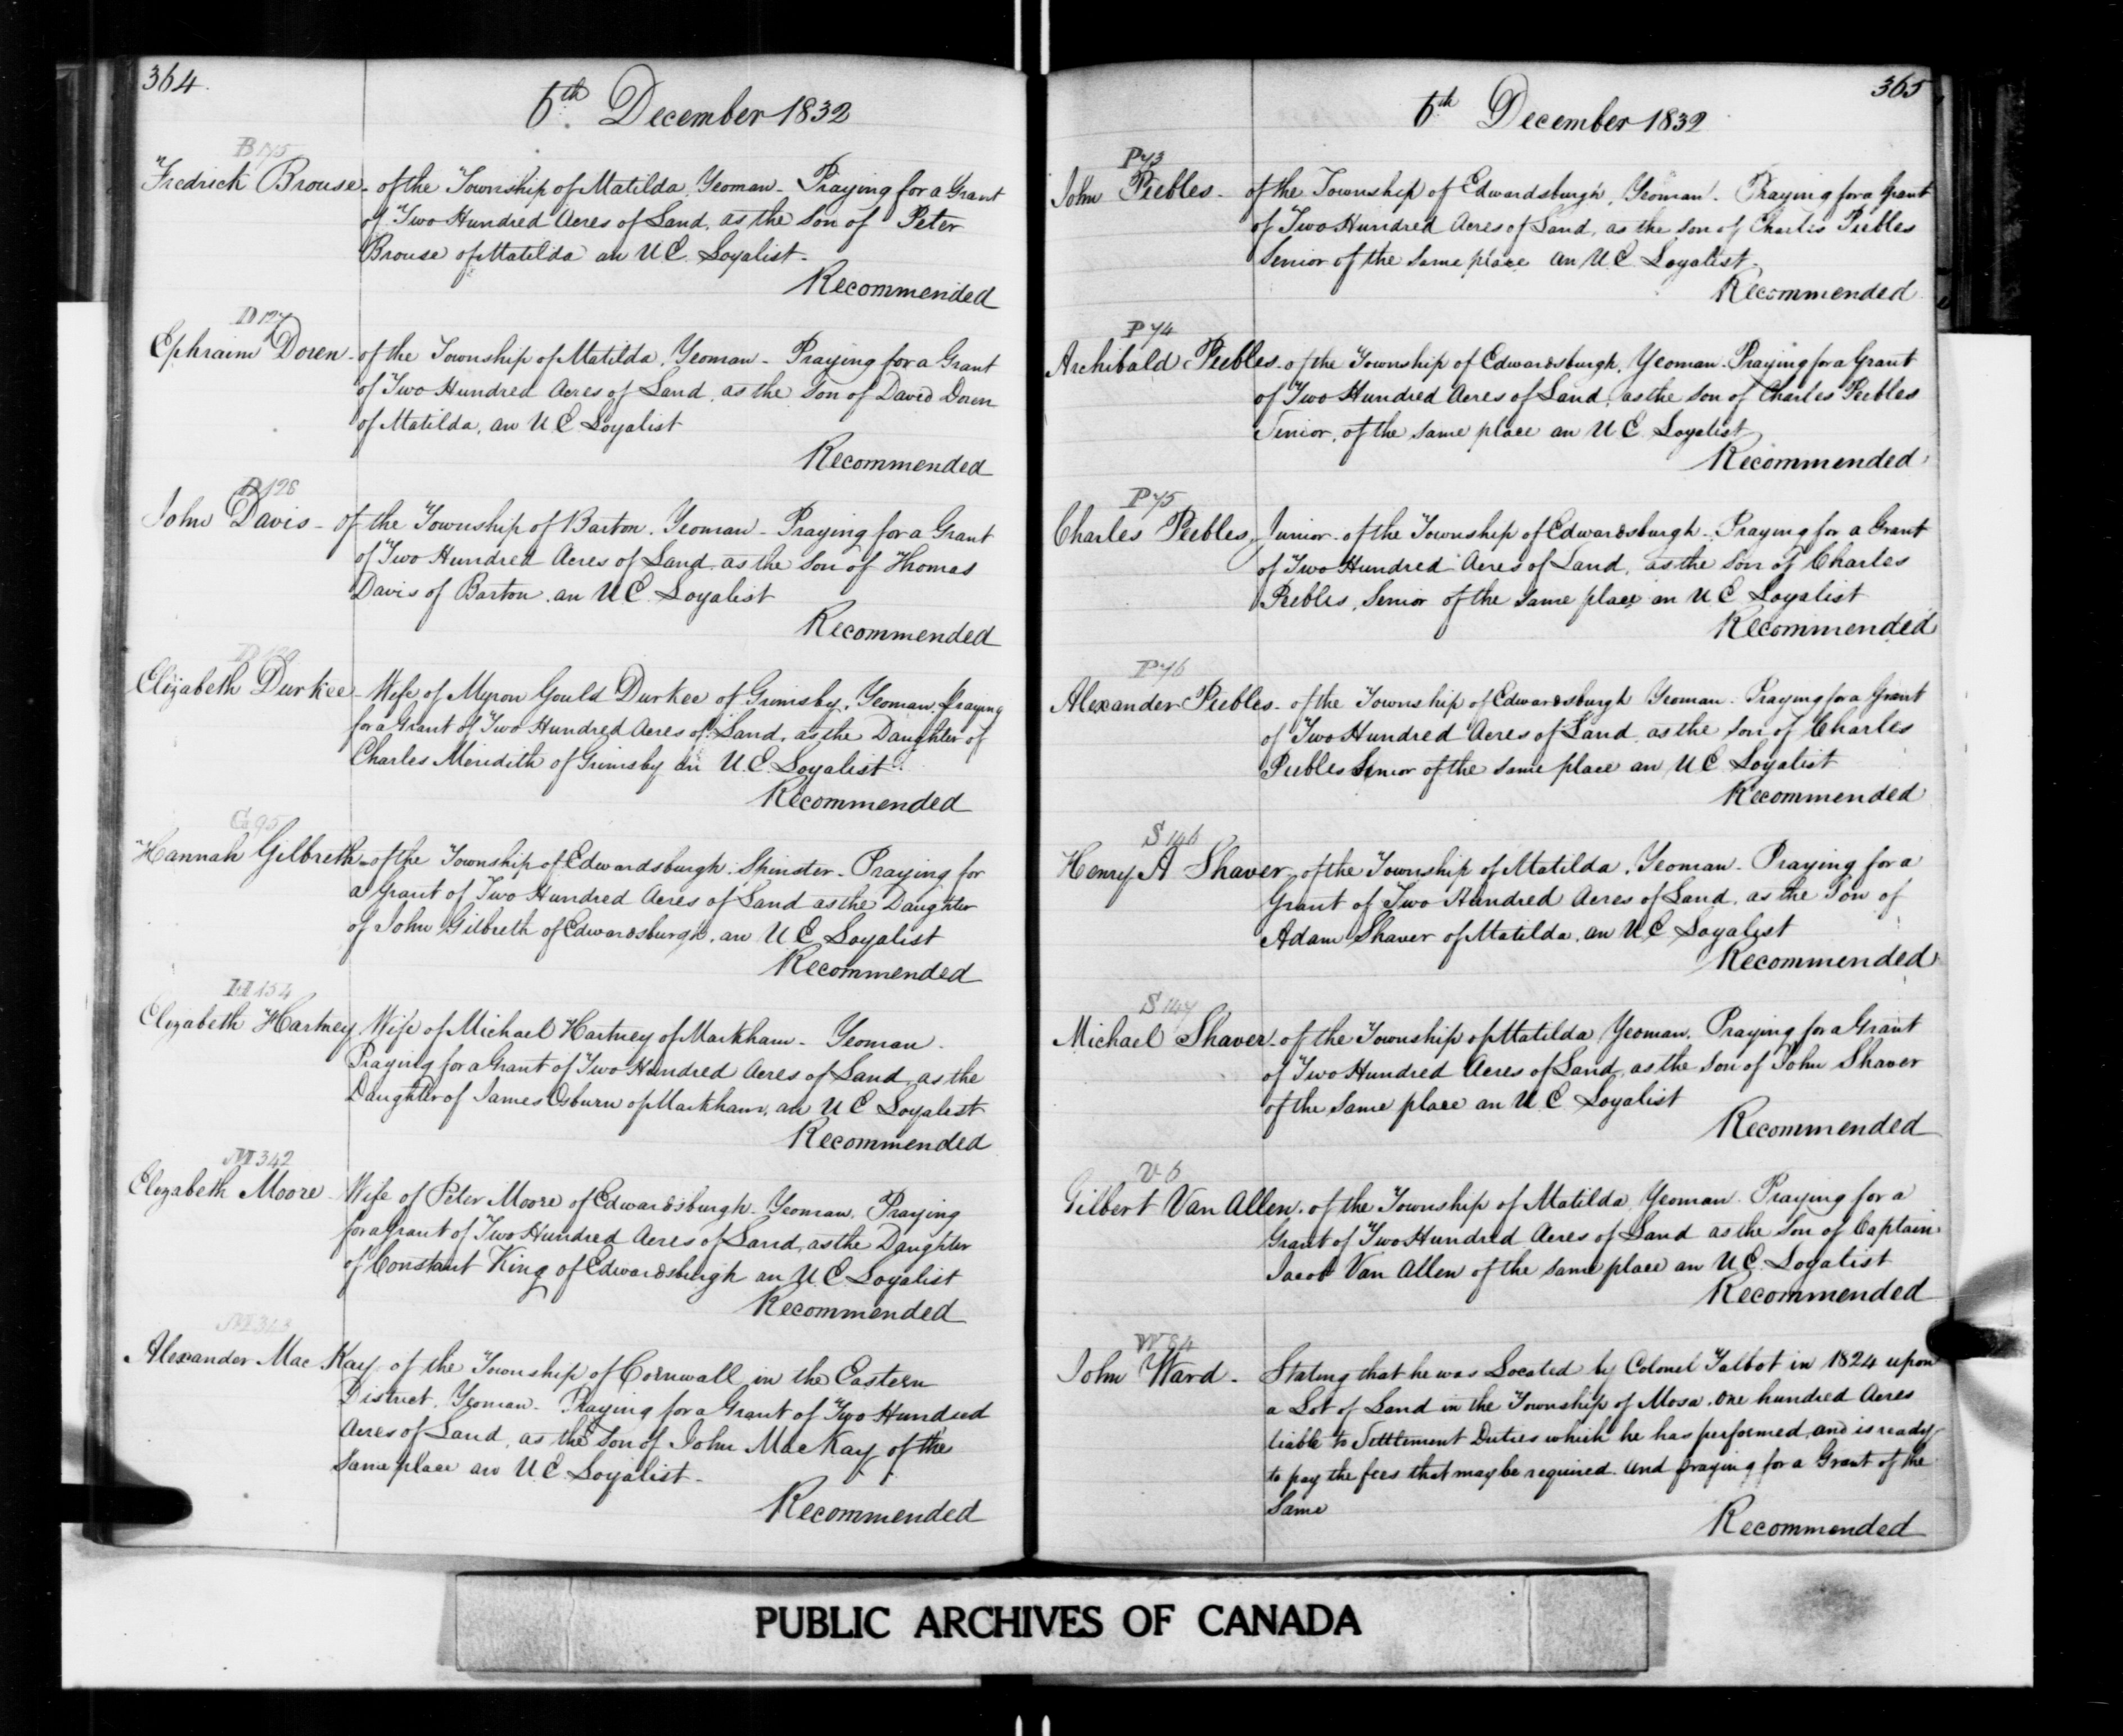 364.
6th. December 1832
B 175
Fredrick Brouse - of the Township of Matilda, Yeoman - Praying for a Grant
of Two Hundred Acres of Land, as the Son of Peter
Brouse of Matilda an U.E. Loyalist -
Recommended
D 127
Ephraim Doren - of the Township of Matilda, Yeoman - Praying for a Grant
of Two Hundred Acres of Land, as the Son of David Doren
of Matilda, an U E Loyalist
Recommended
D 128
John Davis - of the Township of Barton, Yeoman - Praying for a Grant
of Two Hundred Acres of Land as the Son of Thomas
Davis of Barton, an U E. Loyalist
Recommended
Elizabeth Durkee - Wife of Myron Gould Durkee of Grimsby, Yeoman, Praying
for a Grant of Two Hundred Acres of Land, as the Daughter of
Charles Meridith of Grimsby an U.E. Loyalist.
Recommended
G 95
Hannah Gilbreth - of the Township of Edwardsburgh, Spinster - Praying for
a Grant of Two Hundred Acres of Land as the Daughter
of John Gilbreth of Edwardsburgh, an U E Loyalist
Recommended
H 154
Elizabeth Hartney, Wife of Michael Hartney of Markham - Yeoman -
Praying for a Grant of Two Hundred Acres of Land, as the
Daughter of James Osburn of Markham, an U E Loyalist
Recommended
M 342
Elizabeth Moore - Wife of Peter Moore of Edwardsburgh - Yeoman, Praying
for a Grant of Two Hundred Acres of Land, as the Daughter
of Constant King of Edwardsburgh an U.E. Loyalist
Recommended
M 343
Alexander Mac Kay - of the Township of Cornwall in the Eastern
District, Yeoman - Praying for a Grant of Two Hundred
Acres of Land, as the Son of John Mac Kay of the
Same place an U E Loyalist -
Recommended
365
6th December 1832
P 73
John Peebles - of the Township of Edwardsburgh, Yeoman - Praying for a Grant
of Two Hundred Acres of Land, as the Son of Charles Peebles
Senior of the Same place an U.E. Loyalist
Recommended
P 74
Archibald Peebles - of the Township of Edwardsburgh, Yeoman - Praying for a Grant
of Two Hundred Acres of Land, as the Son of Charles Peebles
Senior, of the Same place an U E Loyalist
Recommended
P 75
Charles Peebles, Junior - of the Township of Edwardsburgh - Praying for a Grant
of Two Hundred Acres of Land, as the Son of Charles
Peebles, Senior of the Same place an U E Loyalist
Recommended
P 76
Alexander Peebles - of the Township of Edwardsburgh Yeoman - Praying for a Grant
of Two Hundred Acres of Land as the Son of Charles
Peebles Senior of the Same place an U E Loyalist
Recommended
S 146
Henry A Shaver, of the Township of Matilda, Yeoman - Praying for a
Grant of Two Hundred Acres of Land, as the Son of
Adam Shaver of Matilda, an U E Loyalist
Recommended
S 147
Michael Shaver - of the Township of Matilda Yeoman, Praying for a Grant
of Two Hundred Acres of Land, as the Son of John Shaver
of the Same place an U E Loyalist
Recommended
V 6
Gilbert Van Allen - of the Township of Matilda Yeoman - Praying for a
Grant of Two Hundred Acres of Land as the Son of Captain
Jacob Van Allen of the Same place an U E Loyalist
Recommended
W 84
John Ward - Stating that he was Located by Colonel Talbot in 1824 upon
a Lot of Land in the Township of Mosa, One hundred Acres
liable to Settlement Duties which he has performed, and is ready
to pay the fees that may be required and praying for a Grant of the
Same
Recommended
PUBLIC ARCHIVES OF CANADA